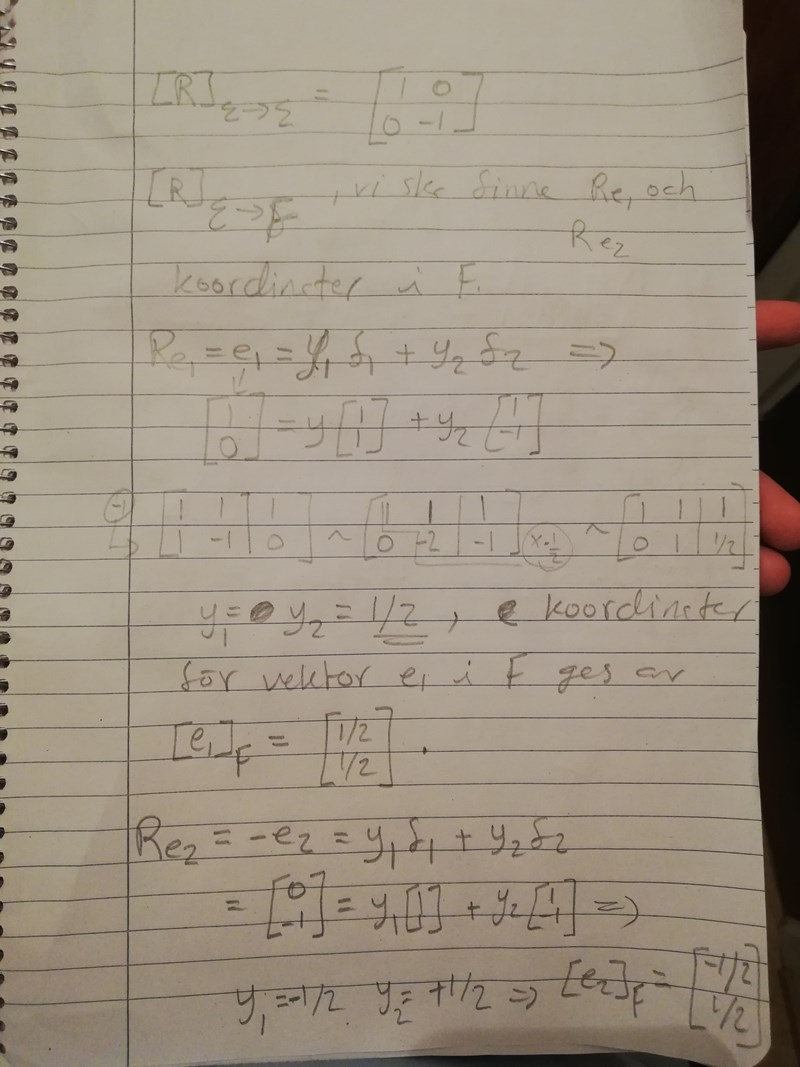 [R]_{ε→ε} = [1 0; 0 -1]
[R]_{ε→F}, vi ska finna Re₁ och
Re₂
koordinater i F.
Re₁ = e₁ = y₁ f₁ + y₂ f₂ ⇒
↓
[1; 0] = y [1; 1] + y₂ [1; -1]
(-1) [1 1 | 1; 1 -1 | 0] ~ [1 1 | 1; 0 -2 | -1] (x-1/2) ~ [1 1 | 1; 0 1 | 1/2]
y₁ = y₂ = 1/2, koordinater
för vektor e₁ i F ges av
[e₁]_F = [1/2; 1/2].
Re₂ = -e₂ = y₁ f₁ + y₂ f₂
= [0; -1] = y₁ [1; 1] + y₂ [1; -1] ⇒
y₁ = -1/2 y₂ = +1/2 ⇒ [e₂]_F = [-1/2; 1/2]